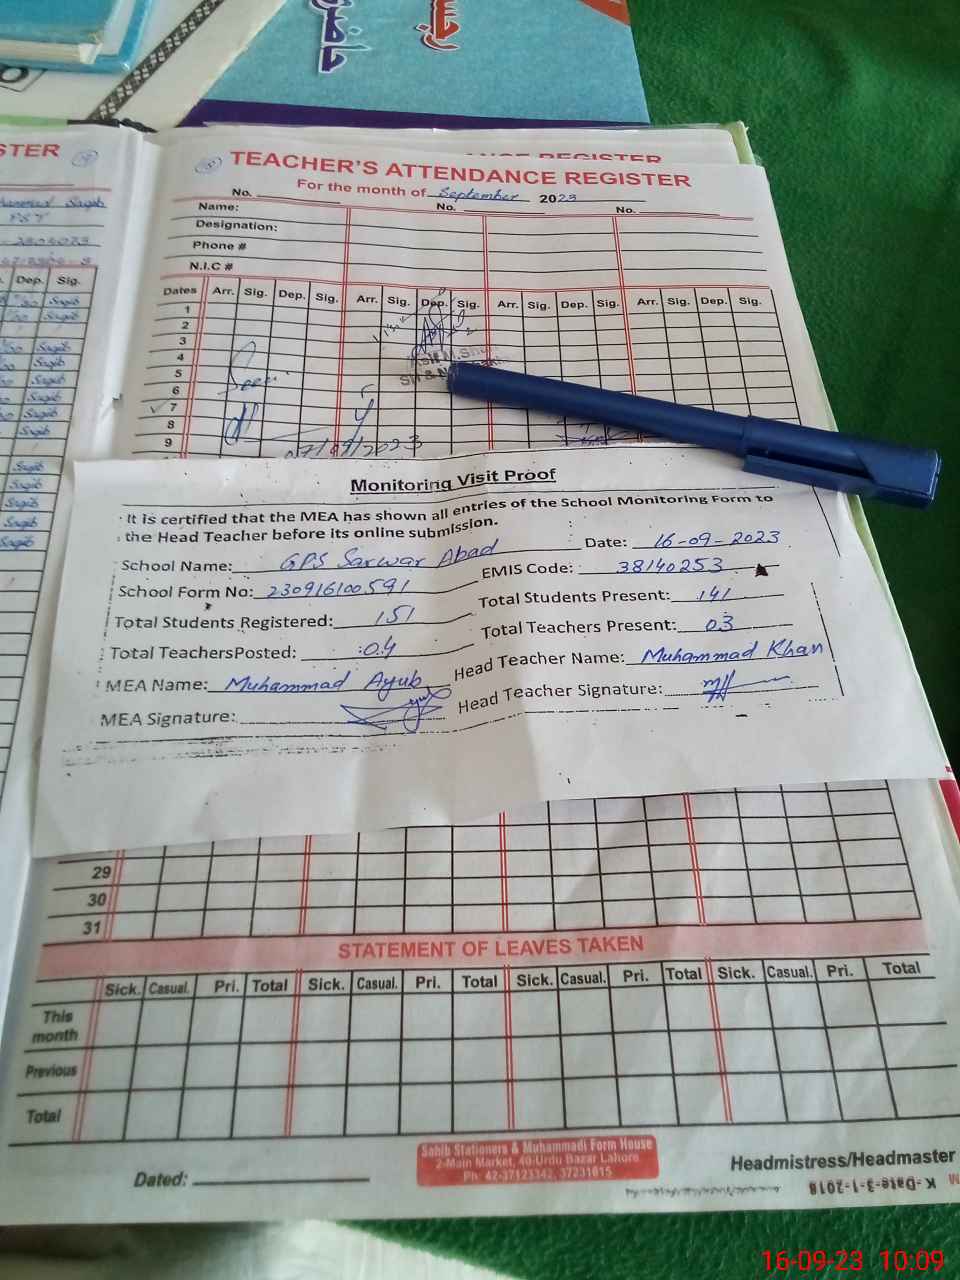 رجسٹر
حاضری
STER
TEACHER'S ATTENDANCE REGISTER
For the month of September 2023
No. No. No.
Name:
Designation:
Phone #
N.I.C #
PST
Dep. Sig.
Saqib
Saqib
Saqib
Saqib
Saqib
Saqib
Saqib
Saqib
Saqib
Saqib
Saqib
Saqib
Saqib
Dates Arr. Sig. Dep. Sig. Arr. Sig. Dep. Sig. Arr. Sig. Dep. Sig. Arr. Sig. Dep. Sig.
1
2
3
4
5
6
7
8
9
Seen
07/09/2023
Monitoring Visit Proof
It is certified that the MEA has shown all entries of the School Monitoring Form to
the Head Teacher before its online submission.
Date: 16-09-2023
School Name: GPS Sarwar Abad
EMIS Code: 38140253
School Form No: 230916100591
Total Students Present: 141
Total Students Registered: 151
Total Teachers Present: 03
Total TeachersPosted: 04
Head Teacher Name: Muhammad Khan
MEA Name: Muhammad Ayub
Head Teacher Signature:
MEA Signature:
29
30
31
STATEMENT OF LEAVES TAKEN
Sick. Casual. Pri. Total Sick. Casual. Pri. Total Sick. Casual. Pri. Total Sick. Casual. Pri. Total
This
month
Previous
Total
Sahib Stationers & Muhammadi Form House
2-Main Market, 40-Urdu Bazar Lahore
Ph: 42-37123342, 37231615
Dated:
Headmistress/Headmaster
K-Date-3-1-2018
16-09-23 10:09